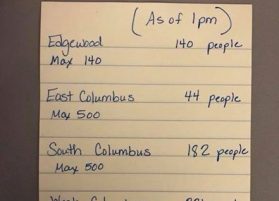 (As of 1pm)
Edgewood 140 people
Max 140
East Columbus 44 people
Max 500
South Columbus 182 people
Max 500